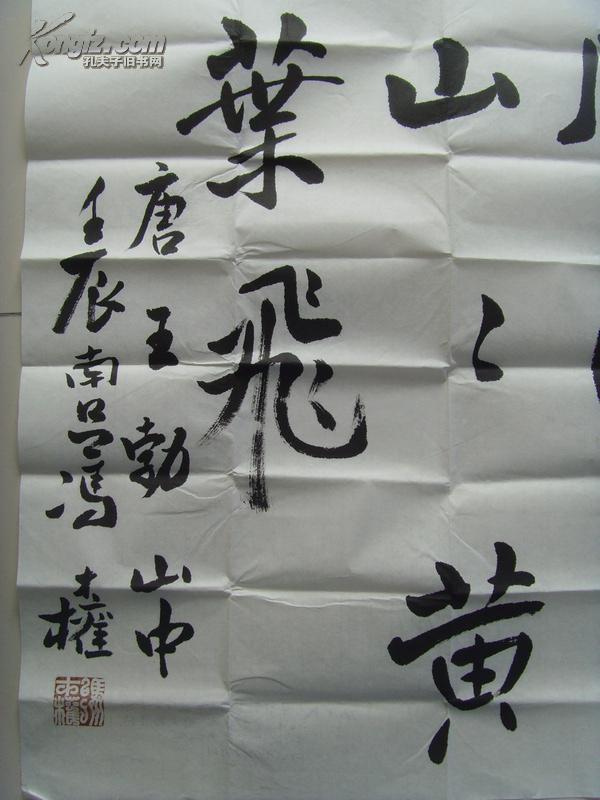 Kongfz.com
孔夫子旧书网
山〻黄
葉飛
唐王勃山中
壬辰南吕馮木權